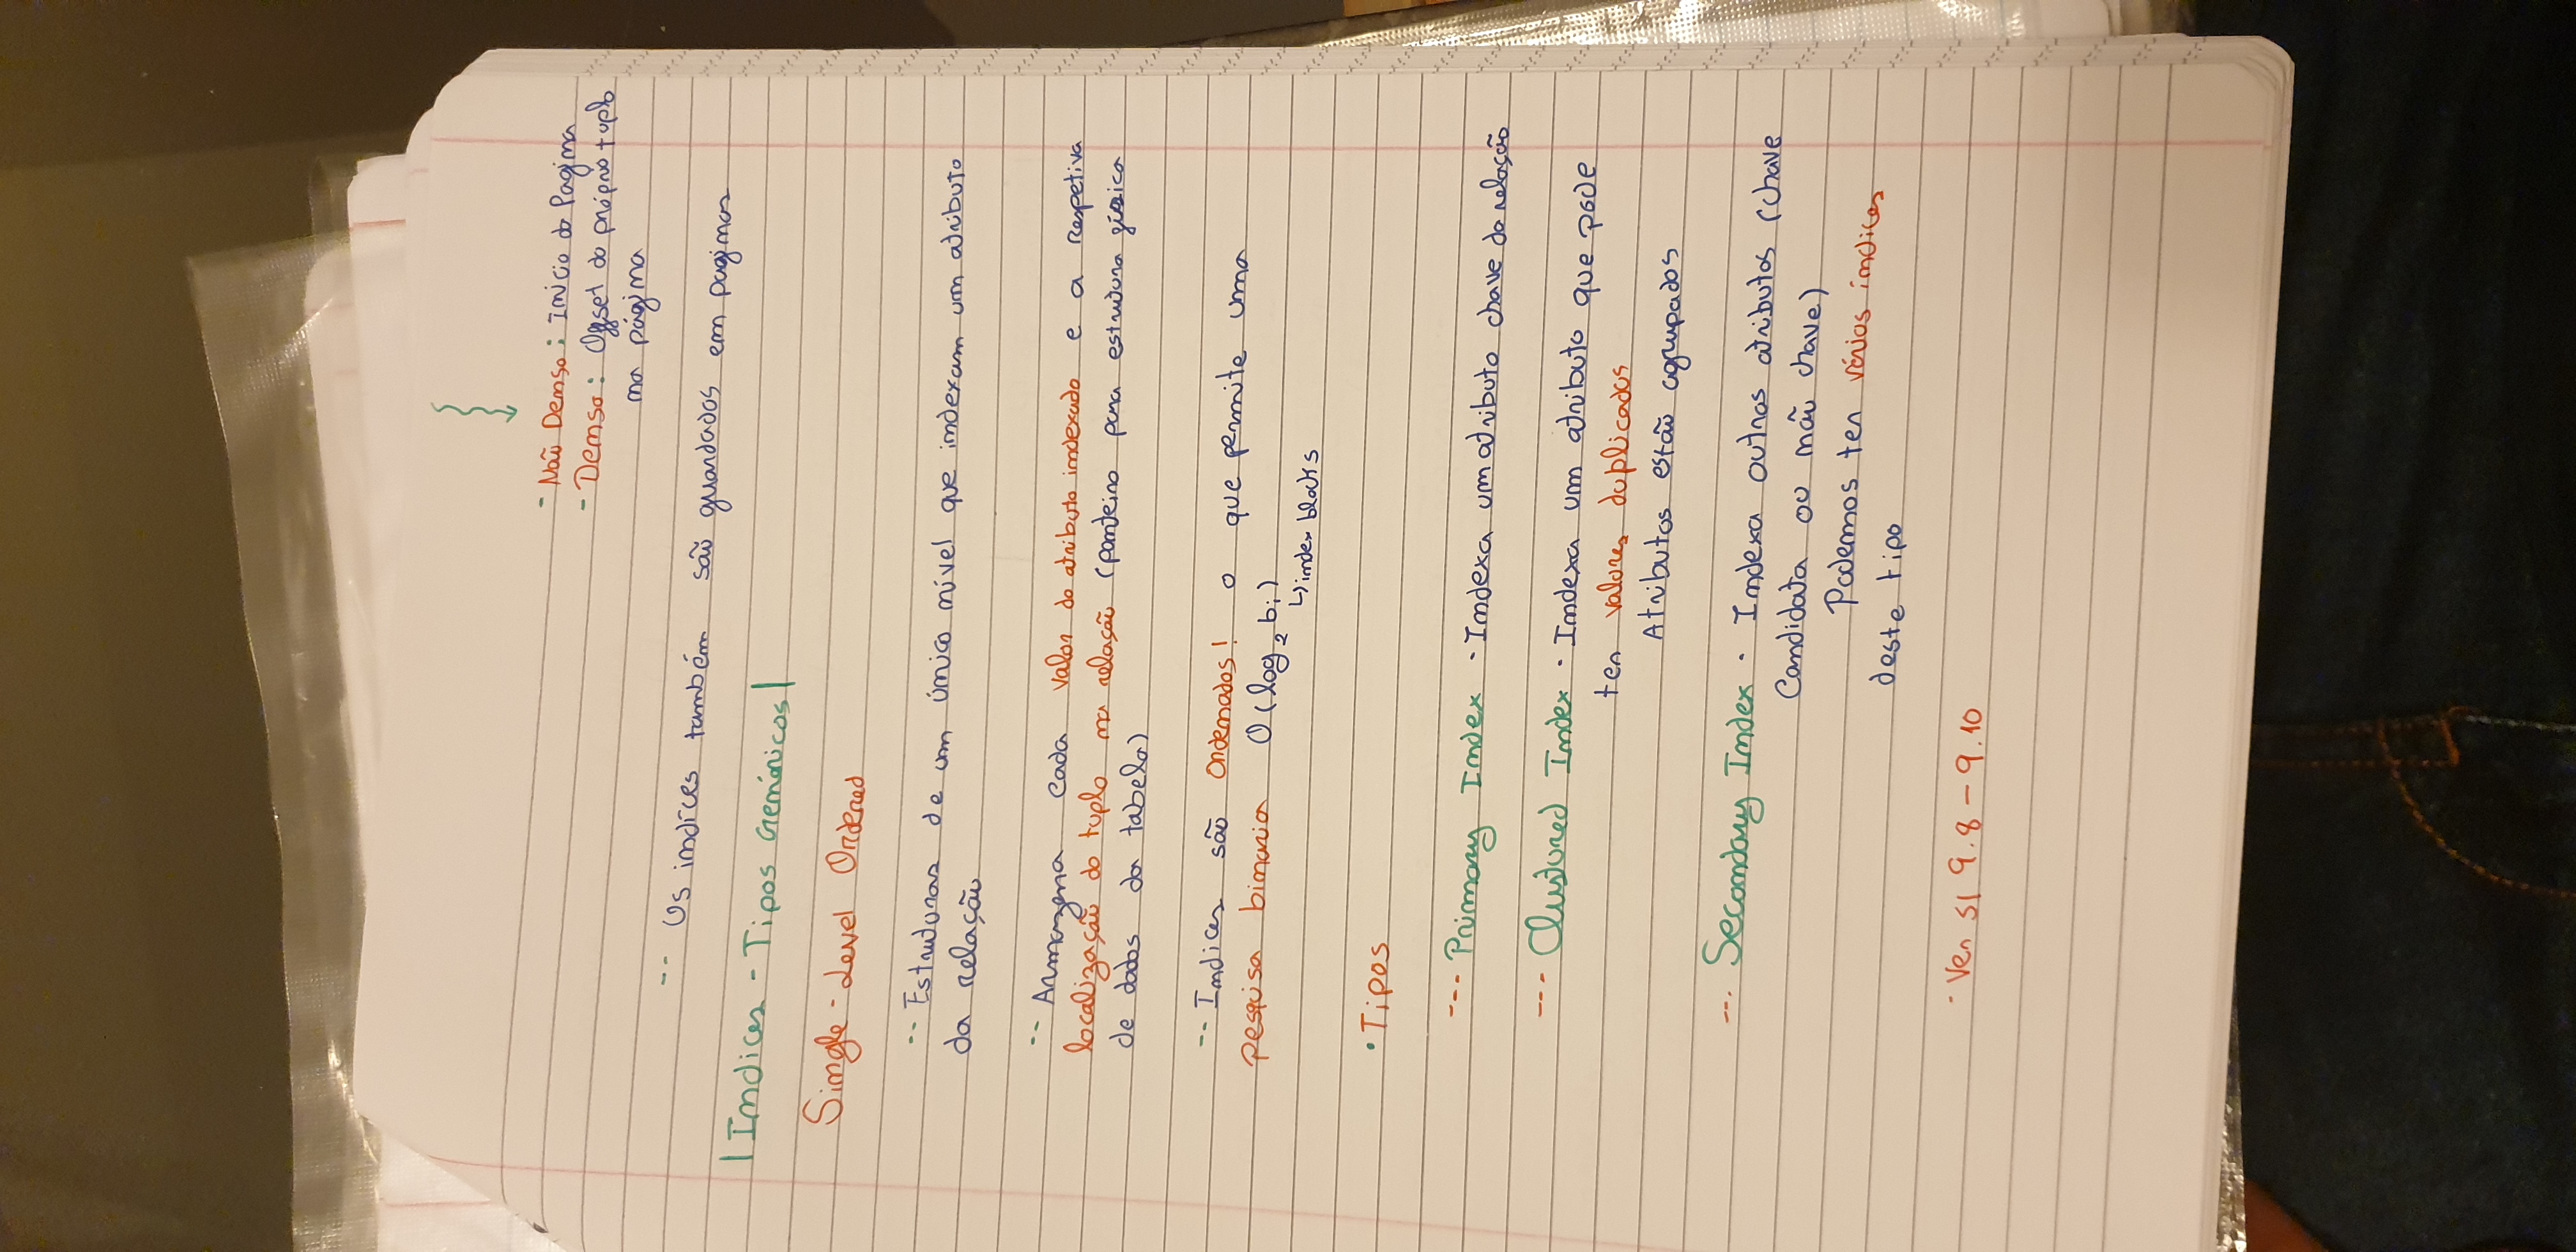 - Não Denso: Inicio do Pagina
- Denso: Offset do próprio tuplo
na página
-- Os indíces também são guardados em paginas
| Indices - Tipos Genéricos |
Single-Level Ordered
-- Estruturas de um único nível que indexam um atributo
da relação
-- Armazena cada valor do atributo indexado e a respetiva
localização do tuplo na relação (ponteiro para estrutura física
de dados da tabela)
-- Indices são Ordenados! o que permite uma
pesquisa binaria O(log₂ bᵢ)
↳ index blocks
• Tipos
--- Primary Index · Indexa um atributo chave da relação
--- Clustured Index · Indexa um atributo que pode
ter valores duplicados
Atributos estão agrupados
--- Secondary Index · Indexa outros atributos (chave
Candidata ou não chave)
Podemos ter vários indices
deste tipo
· Ver sl 9.8 - 9.10